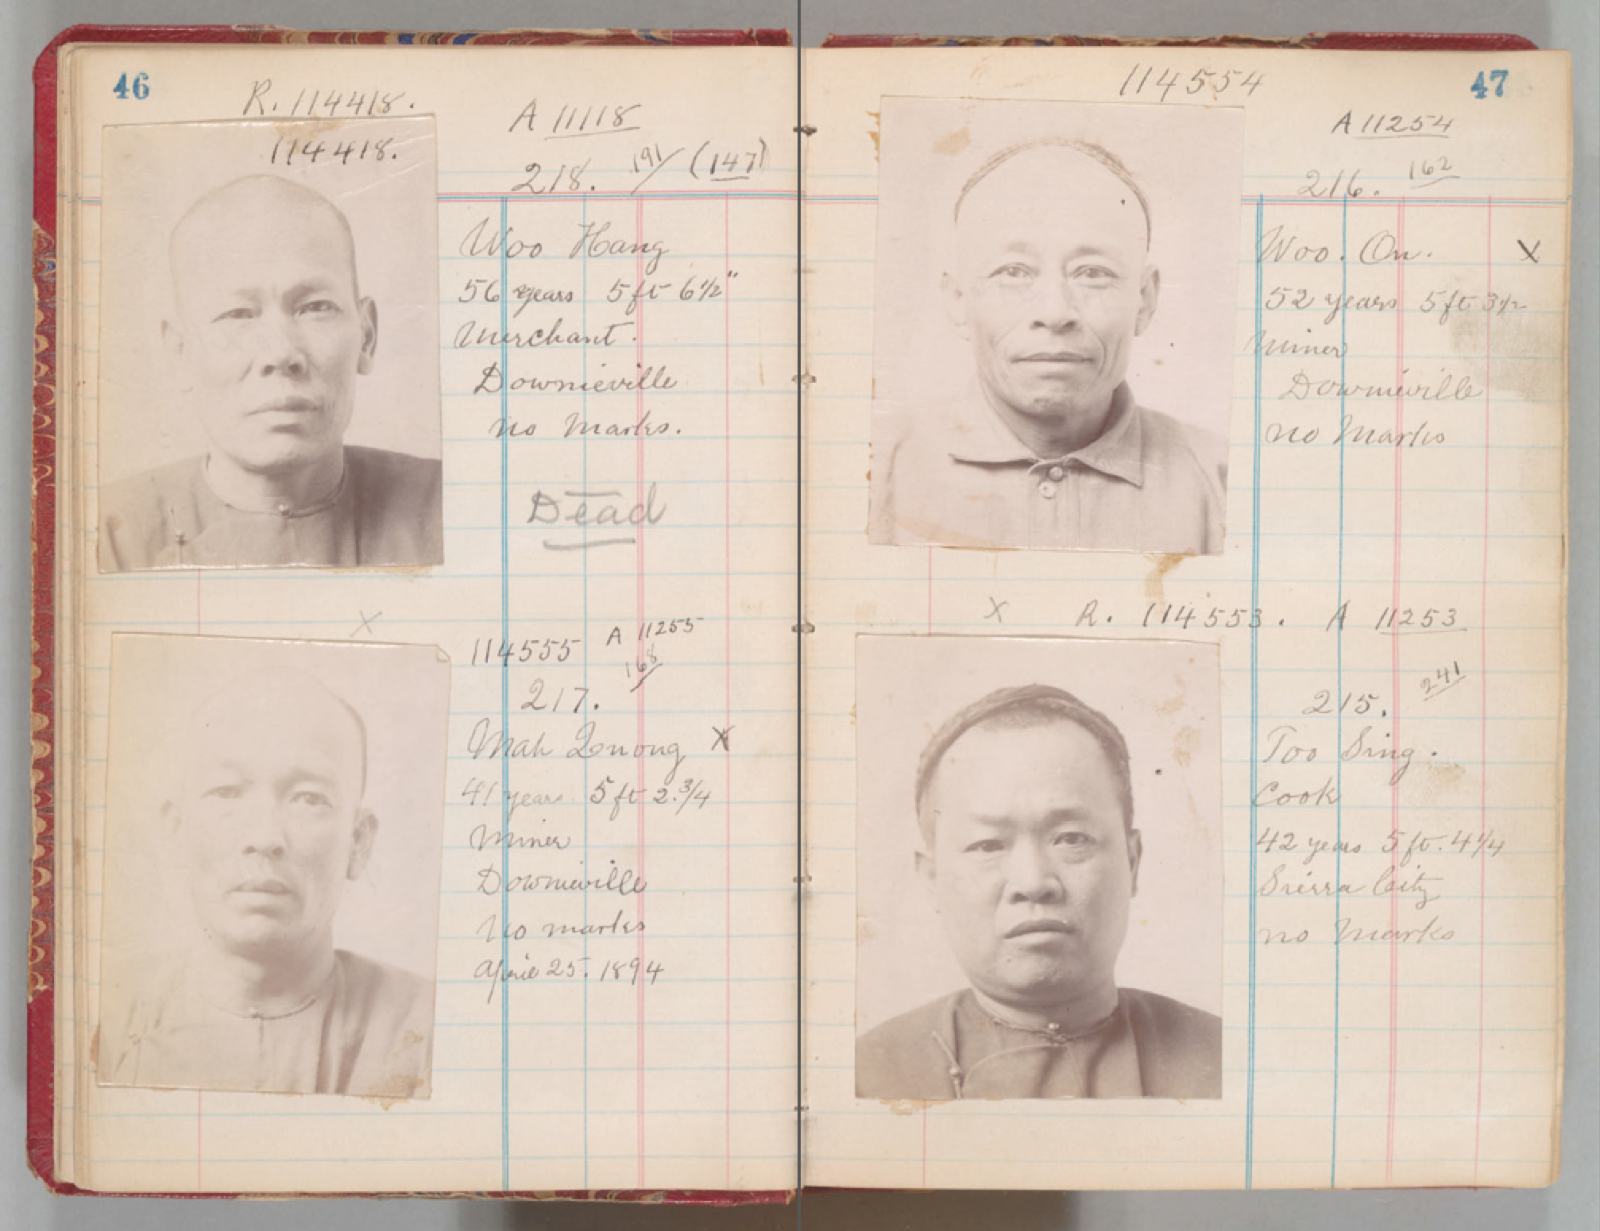 46
R. 114418.
114418.
A 11118
218. 191/ (147)
Woo Hang
56 years 5 ft 6 1/2"
Merchant.
Downieville
no Marks.
Dead
X
114555 A 11255
168
217.
Mah Quong X
41 years 5 ft 2.3/4
Miner
Downieville
No marks
April 25. 1894
114554
47
A 11254
216. 162
Woo. On. X
52 years 5 ft 3 1/2
Miner
Downieville
no Marks
X R. 114553. A 11253
241
215.
Too Sing.
Cook
42 years 5 ft. 4 1/4
Sierra City
no Marks